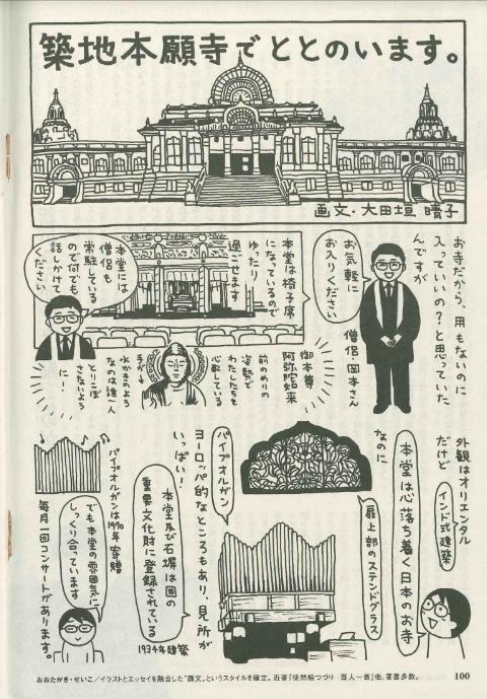 築地本願寺でととのいます。
画文・大田垣 晴子
お寺だから、用もないのに
入っていいの？と思っていた
んですが
お気軽に
お入りください
僧侶・岡本さん
本堂は椅子席
になっているので
ゆったり
過ごせます
本堂には
僧侶も
常駐している
ので何でも
話しかけて
ください
御本尊
阿弥陀如来
前のめりの
姿勢で
わたしたちを
心配している
手が
水かきのよう
なのは誰一人
とりこぼ
さないよう
に！
外観はオリエンタル
だけど
インド式建築
本堂は心落ち着く日本のお寺
なのに
扉上部のステンドグラス
パイプオルガン
ヨーロッパ的なところもあり、見所が
いっぱい！
本堂及び石塀は国の
重要文化財に登録されている
1934年建築
パイプオルガンは1970年寄贈
でも本堂の雰囲気に
しっくり合っています
毎月一回コンサートがあります。
おおたがき・せいこ／イラストとエッセイを融合した“画文”というスタイルを確立。近著『徒然絵つづり 百人一首』他、著書多数。
100